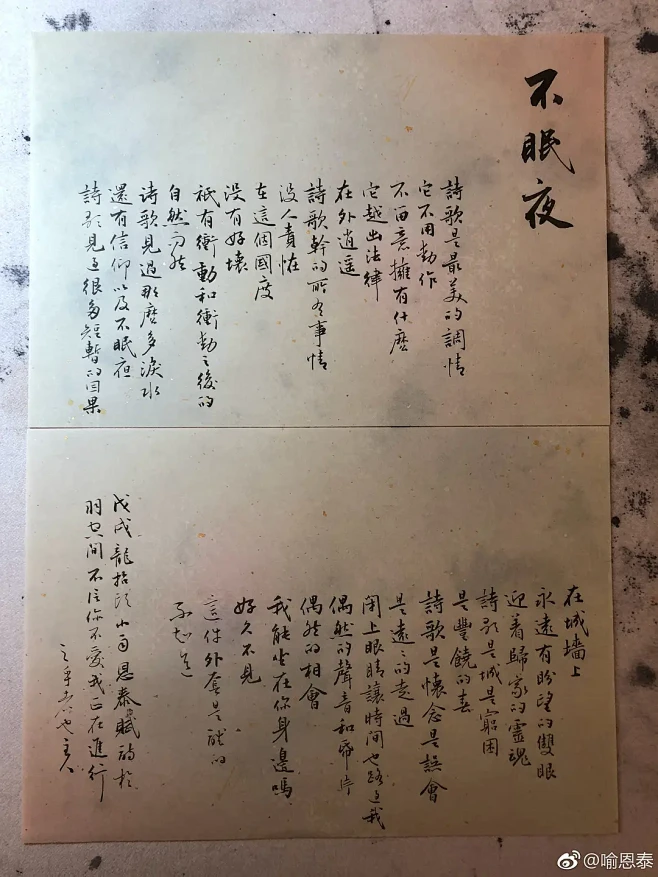 不眠夜
詩歌是最美的調情
它不用動作
不留意擁有什麼
它越出法律
在外逍遥
詩歌幹的所有事情
没人責怪
在這個國度
没有好壞
衹有衝動和衝動之後的
自然而然
诗歌見過那麼多淚水
還有信仰以及不眠夜
詩歌見過很多短暫的因果
在城墙上
永遠有盼望的雙眼
迎着歸家的靈魂
詩歌是城是窮困
是豐饒的春
詩歌是懷念是誤會
是遠々的走過
閉上眼睛讓時間也路過我
偶然的聲音和片
偶然的相會
我能坐在你身邊嗎
好久不見
這件外套是的
不知道
戊戌龍抬頭小雨恩泰賦詩於
羽空間不你不愛我正在進行
主人
@喻恩泰